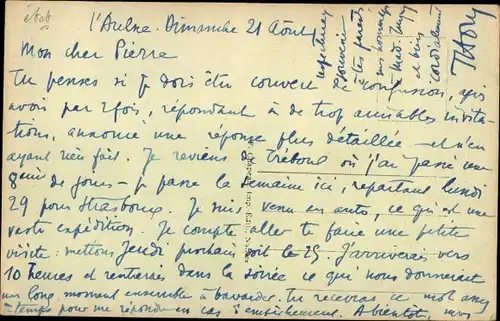 l'Aulne. Dimanche 21 Août
Mon cher Pierre
Tu penses si je dois être couvert de confusion, après
avoir par 2 fois, répondant à de trop aimables invita-
tions, annoncé une réponse plus détaillée - et n'en
ayant rien fait. Je reviens de Tréboul où j'ai passé une
8aine de jours - je passe la semaine ici, repartant lundi
29 pour Strasbourg. Je suis venu en auto, ce qui est une
vaste expédition. Je compte aller te faire une petite
visite : mettons Jeudi prochain soit le 25. J'arriverais vers
10 heures et rentrerais dans la soirée ce qui nous donnerait
un long moment ensemble à bavarder. Tu recevras ce mot assez
à temps pour me répondre en cas d'empêchement. A bientôt,
mes hommages
à Mad.
et bien
cordialement